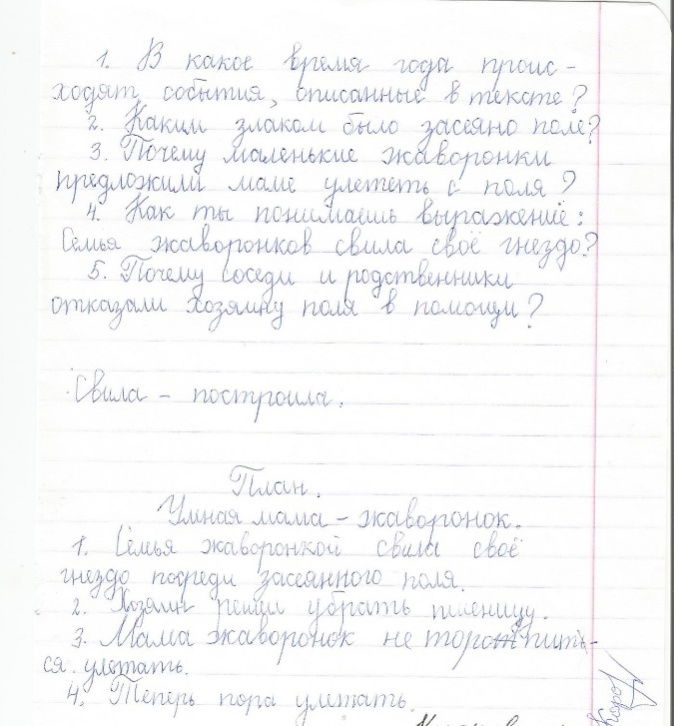 1. В какое время года проис-
ходят события, описанные в тексте?
2. Каким злаком было засеяно поле?
3. Почему маленькие жаворонки
предложили маме улететь с поля?
4. Как ты понимаешь выражение:
Семья жаворонков свила своё гнездо?
5. Почему соседи и родственники
отказали хозяину поля в помощи?
Свила - построила.
План.
Умная мама - жаворонок.
1. Семья жаворонкой свила своё
гнездо посреди засеянного поля.
2. Хозяин решил убрать пшеницу.
3. Мама жаворонок не торопить-
ся улетать.
4. Теперь пора улетать.